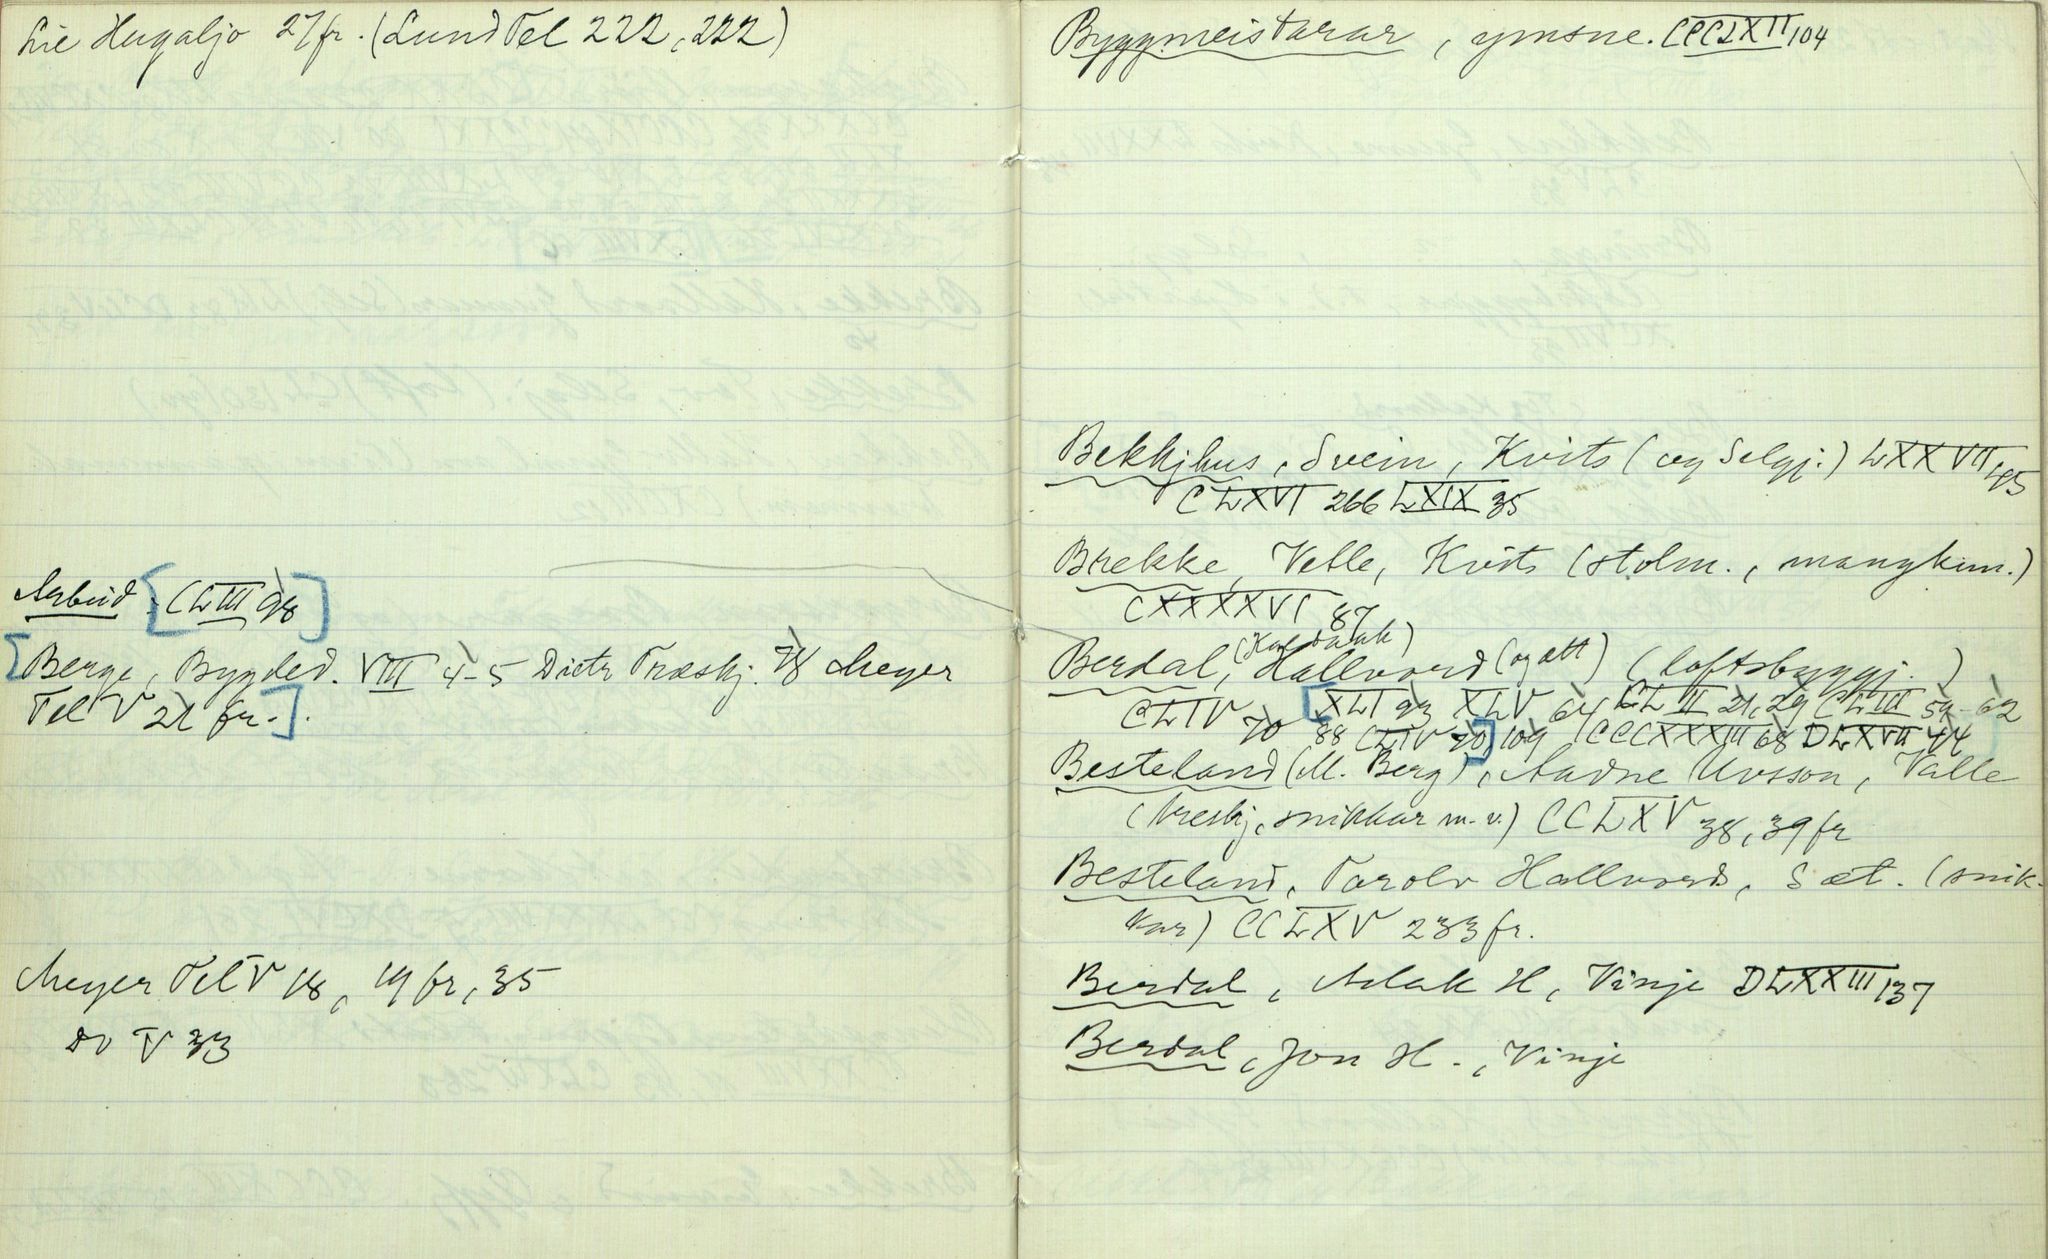 Lie Hugaljo 27 fr. (Lund Tel 222, 222)
Arbeid [CLIII 98]
[Berge, Bygded. VIII 4-5 Dietr Træskj. 78 Meyer
Tel V 21 fr.].
Meyer Tel V 18, 19 fr, 35
Do V 33
Byggmeistarar, ymsne. CCCLXII 104
Bekkjhus, Svein, Kvits (og Selgj.) LXXVII 45
CLXVI 266 LXIX 35
Brekke, Vetle, Kvits (stolm., mangkun.)
CXXXXVI 87
Berdal, Hallvord (og ætt) (loftsbyggj.)
CLIV 70 [XLI 93 XLV 64 CLII 21, 29 CLIII 59-62
88 CLIV 70] 109 CCCXXXIII 68 DLXVII 44
Besteland (M. Berg), Aadne Uvsson, Valle
(treskj, snikkar m.v.) CCLXV 38, 39 fr
Besteland, Tarolv Hallvords, Sæt. (snik-
kar) CCLXV 233 fr.
Berdal, Aslak H, Vinje DLXXIII 137
Berdal, Jon H., Vinje